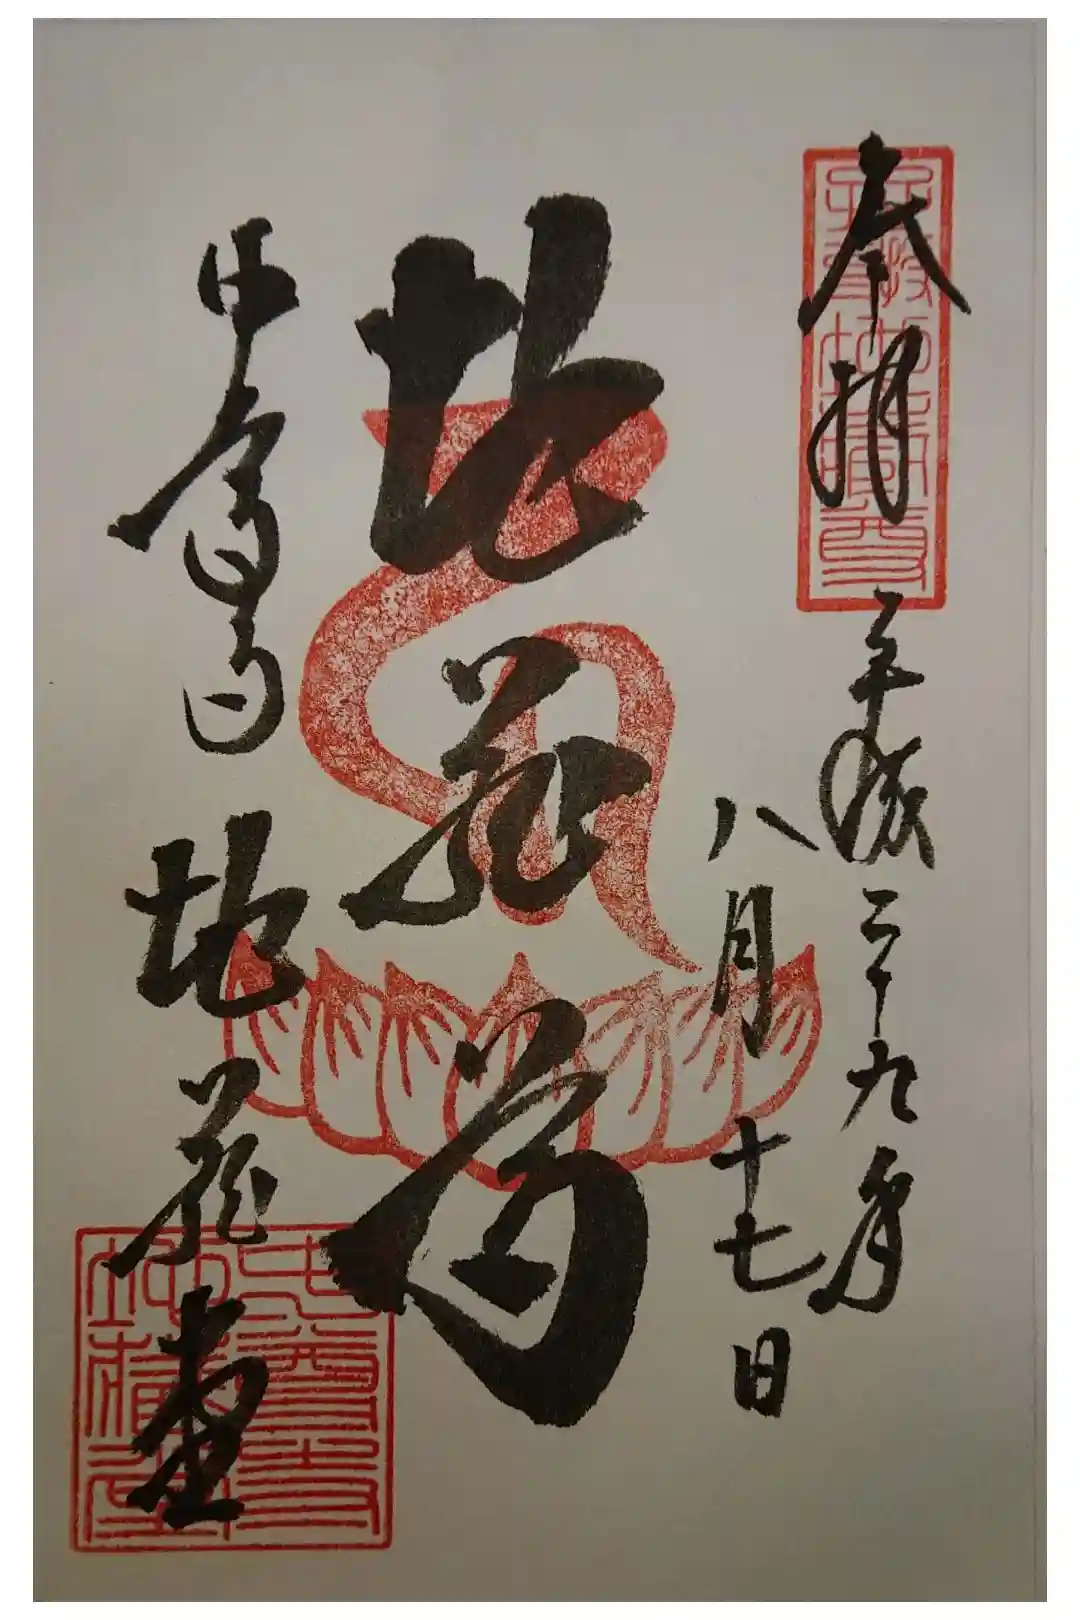 奉拝
平成二十九年
八月十七日
地蔵尊
中尊寺
地蔵堂